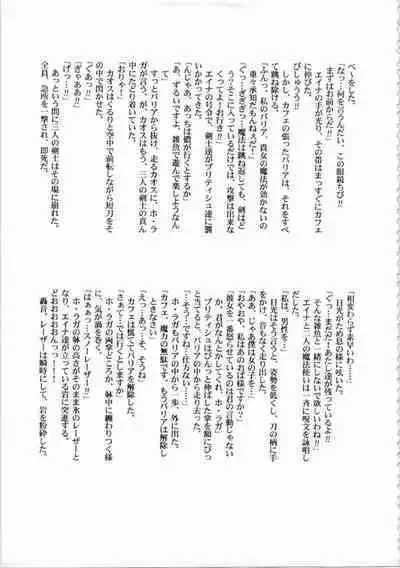 べ〜をした。
「なっ…何を言うんだい、この眼鏡ちび!!
まずはお前からだ!!」
エイナの手が光り、その帯はまっすぐにカフェ
に伸びた。
びしゅうっ!!
しかし、カフェの張ったバリアは、それをすべ
て跳ね除ける。
「ふんっ、私のバリア、貴女の魔法が効かないの
重々承知だもんねぇだ」
「ぐぎぎぎっ…魔法は跳ね返しても、剣はど
うっ?そこに入っているだけでは、攻撃は出来な
くってよ!お行き!!」
エイナの号令で、剣士達がブリティシュ達に襲
いかかってきた。
「んじゃあ、あっちは儂が行くとするか」
「あ、ずるいですよ、雑魚で遊んで楽しようなん
て」
すッとバリアから抜け、走るカオスに、ホ・ラ
ガが言うが、カオスはもう、三人の剣士の真ん
中にたどり着いていた。
「おりゃー!」
カオスはくるりと空中で前転しながら短刀をそ
の中で閃かせた。
「くあっ!」
「ぎゃああ!」
「げっ…!」
あっという間に三人の剣士はその場に崩れた。
全員、急所を一撃され、即死だ。
「相変わらず素早いわ…」
日光がため息の様に呟いた。
「くっ…まだだ!あたし達が残っているよ!!
そんな雑魚と一緒にしないで欲しいわね!!」
エイナと二人の魔法使いは一斉に呪文を詠唱し
だした。
「私は、男性を…」
日光はそう言うと、姿勢を低くし、刀の柄に手
をかけ、音もなく走り出した。
「ああ、じゃあ僕は女の子を…」
「おやおや、私はあのおば様ですか?
彼女を一番怒らせているのは君の言動じゃない
か、君がなんとかしてくれ、ホ・ラガ」
ブリティシュはぴんっと伸ばした掌を額にぴっ
と当てると、バリアの中から走り去った。
「…そう…ですね…仕方ない…」
ホ・ラガもバリアの中から一歩、外に出た。
「カフェ、魔力の無駄です、もうバリアは解除し
ときなさい」
「えあっ…そ、そうね」
カフェは慌ててバリアを解除した。
「さぁて…では行くとしますか」
ホ・ラガの両掌どころか、躰中に纏わりつく様
に、気が渦を巻く。
「はぁぁっ…スノーレーザー!!」
ホ・ラガの躰の高さがそのまま氷のレーザーと
なり、エイナ達が立っている岩に突進する。
どおおおおおんっ!!!
轟音、レーザーは瞬時にして、岩を粉砕した。